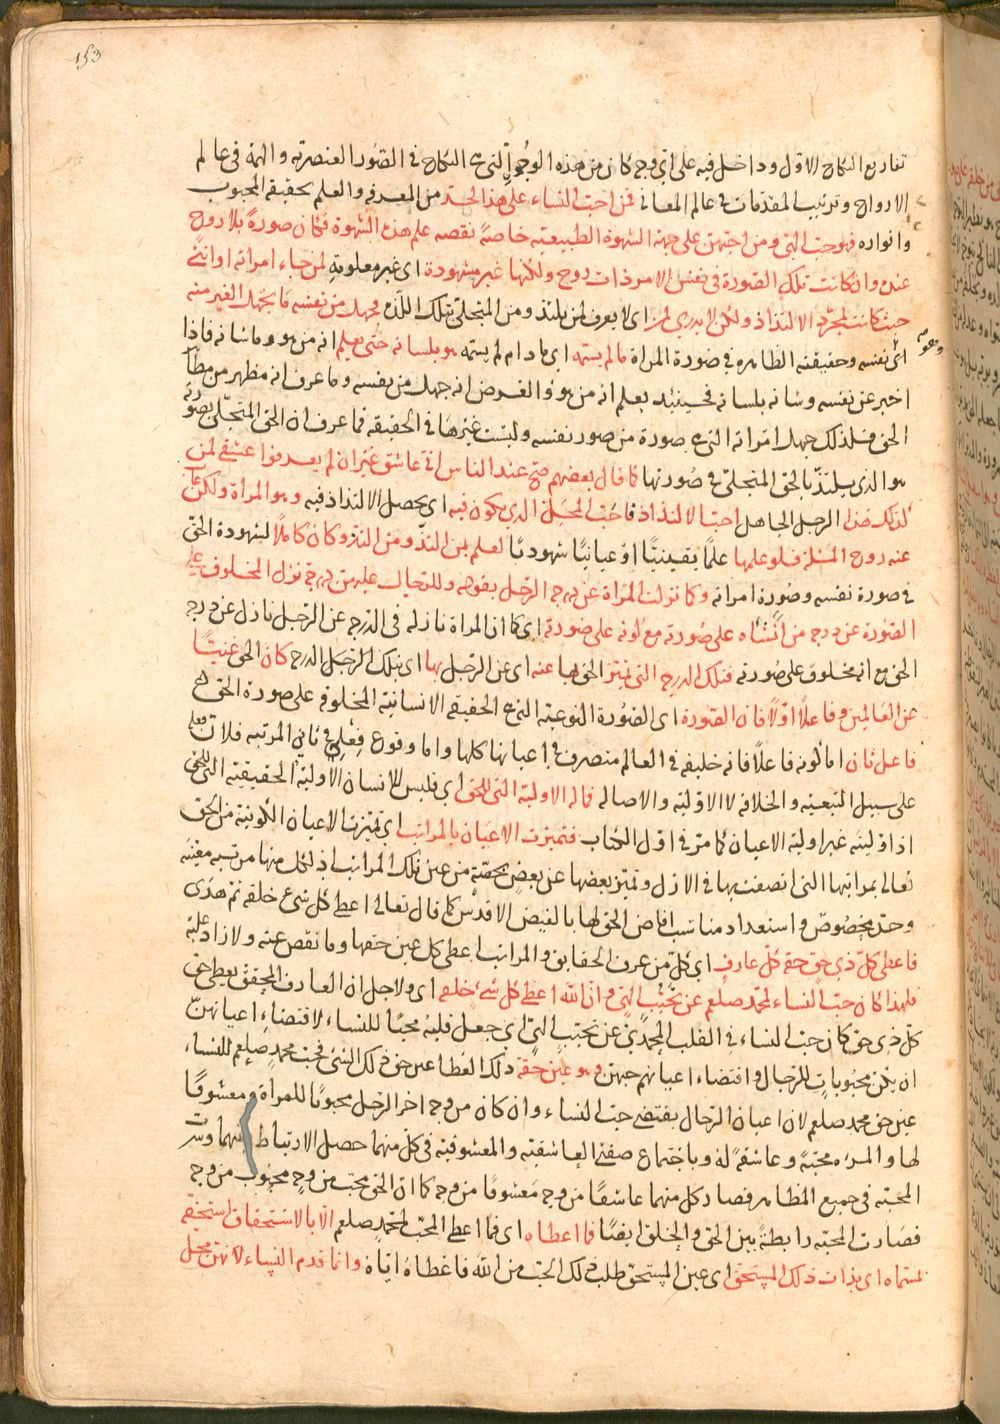 153
تفاريع النكاح الاول وداخل فيه على اي وجه كان من هذه الوجوه التى هى النكاح فى الصور العنصرية والهمة فى عالم
الارواح وترتيب المقدمات فى عالم المعانى فمن احب النساء على هذا الحد من المعرفة والعلم بحقيقة المحبوب
وانواره فهو حب الهى ومن احبهن على جهة الشهوة الطبيعية خاصة نقصه علم هذه الشهوة فكان صورة بلا روح
عنده وان كانت تلك الصورة فى نفس الامر ذات روح ولكنها غير مشهودة اى غير معلومة لمن جاء امراته او انثى
حيث كانت لمجرد الالتذاذ ولكن لا يدرى لمن اى لا يعرف لمن يلتذ ومن المتجلى بتلك اللذة فجهل من نفسه ما يجهل الغير منه
اى نفسه وحقيقته الظاهرة فى صورة المراة ما لم يسمه اى ما دام لم يسمه هو بلسانه حتى يعلم انه من هو وما شانه فاذا
اخبر عن نفسه وشانه بلسانه فحينئذ يعلم انه من هو والغرض انه جهل من نفسه وما عرف انه مظهر من مظاهر
الحق فلذلك جهل امراته التى هى صورة من صور نفسه وليست غيرها فى الحقيقة فما عرف ان الحق المتجلى بصورته
هو الذى يلتذ بالحق المتجلى فى صورتها كما قال بعضهم صح عند الناس انى عاشق غير ان لم يعرفوا عشقى لمن
كذلك هذا الرجل الجاهل احب الالتذاذ فاحب المحل الذى يكون فيه اى يحصل الالتذاذ فيه وهو المراة ولكن غاب
عنه روح المسئلة فلو علمها علما يقينيا او عيانيا شهوديا لعلم بمن التذ ومن التذ وكان كاملا لشهوده الحق
فى صورة نفسه وصورة امراته وكما نزلت المراة عن درجة الرجل بقوله وللرجال عليهن درجة نزل المخلوق على
الصورة عن درجة من انشاه على صورته مع كونه على صورته اى كما ان المراة نازلة فى الدرجة عن الرجل نازل عن درجة
الحق مع انه مخلوق على صورته فتلك الدرجة التى تميز الحق بها عنه اى عن الرجل بها اى بتلك الرجل الدرجة كان الحق غنيا
عن العالمين وفاعلا اولا فان الصورة اى الصورة النوعية التى هى الحقيقة الانسانية المخلوقة على صورة الحق هى
فاعل ثان اما كونه فاعلا فانه خليفة فى العالم متصرف فى اعيانها كلها واما وقوع فعله فى ثانى المرتبة فلان فعله
على سبيل التبعية والخلافة لا الاولية والاصالة فماله الاولية التى للحق اى فليس للانسان الاولية الحقيقية التى للحق
اذ اوليته غير اولية الاعيان كما مر فى اول الكتاب فتميزت الاعيان بالمراتب اى تميزت الاعيان الكونية من الحق
تعالى بمراتبها التى اتصفت بها فى الازل وتميز بعضها عن بعض بحصته من عين تلك المراتب اذ لكل منها مرتبة معينة
وحد مخصوص واستعداد مناسب افاض الحق لها بالفيض الاقدس كما قال تعالى اعطى كل شئ خلقه ثم هدى
فاعطى كل ذى حق حقه كل عارف اى كل من عرف الحقايق والمراتب اعطى كل عين حقها وما نقص عنه ولا زاد عليه
فلهذا كان حب النساء لمحمد صلعم عن تحبب الهى وان الله اعطى كل شئ خلقه اى ولاجل ان العارف المحقق يعطى حق
كل ذى حق كان حب النساء فى القلب المحمدى عن تحبب الهى اى جعل قلبه محبا للنساء لاقتضاء اعيانهن
ان يكن محبوبات للرجال واقتضاء اعيانهم حبهن وهو عين حقه ذلك العطا عين حق ذلك الشئ فحب محمد صلعم للنساء
عين حق محمد صلعم لان اعيان الرجال يقتضى حب النساء وان كان من وجه اخر الرجل محبوبا للمراة ومعشوقا
لها والمراه محبة وعاشقة له وباجتماع صفتى العاشقية والمعشوقية فى كل منهما حصل الارتباط بينهما وسرت
المحبة فى جميع المظاهر فصار كل منهما عاشقا من وجه معشوقا من وجه كما ان الحق محب من وجه محبوب من وجه
فصارت المحبة رابطة بين الحق والخلق ايضا فما اعطاه اى فما اعطى الحب لمحمد صلعم الا بالاستحقاق استحقه
بمسماه اى بذات ذلك المستحق اى عين المستحق طلب ذلك الحب من الله فاعطاه اياه وانما قدم النساء لانهن محل